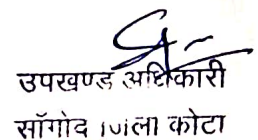 उपखण्ड अधिकारी
सॉंगोद जिला कोटा